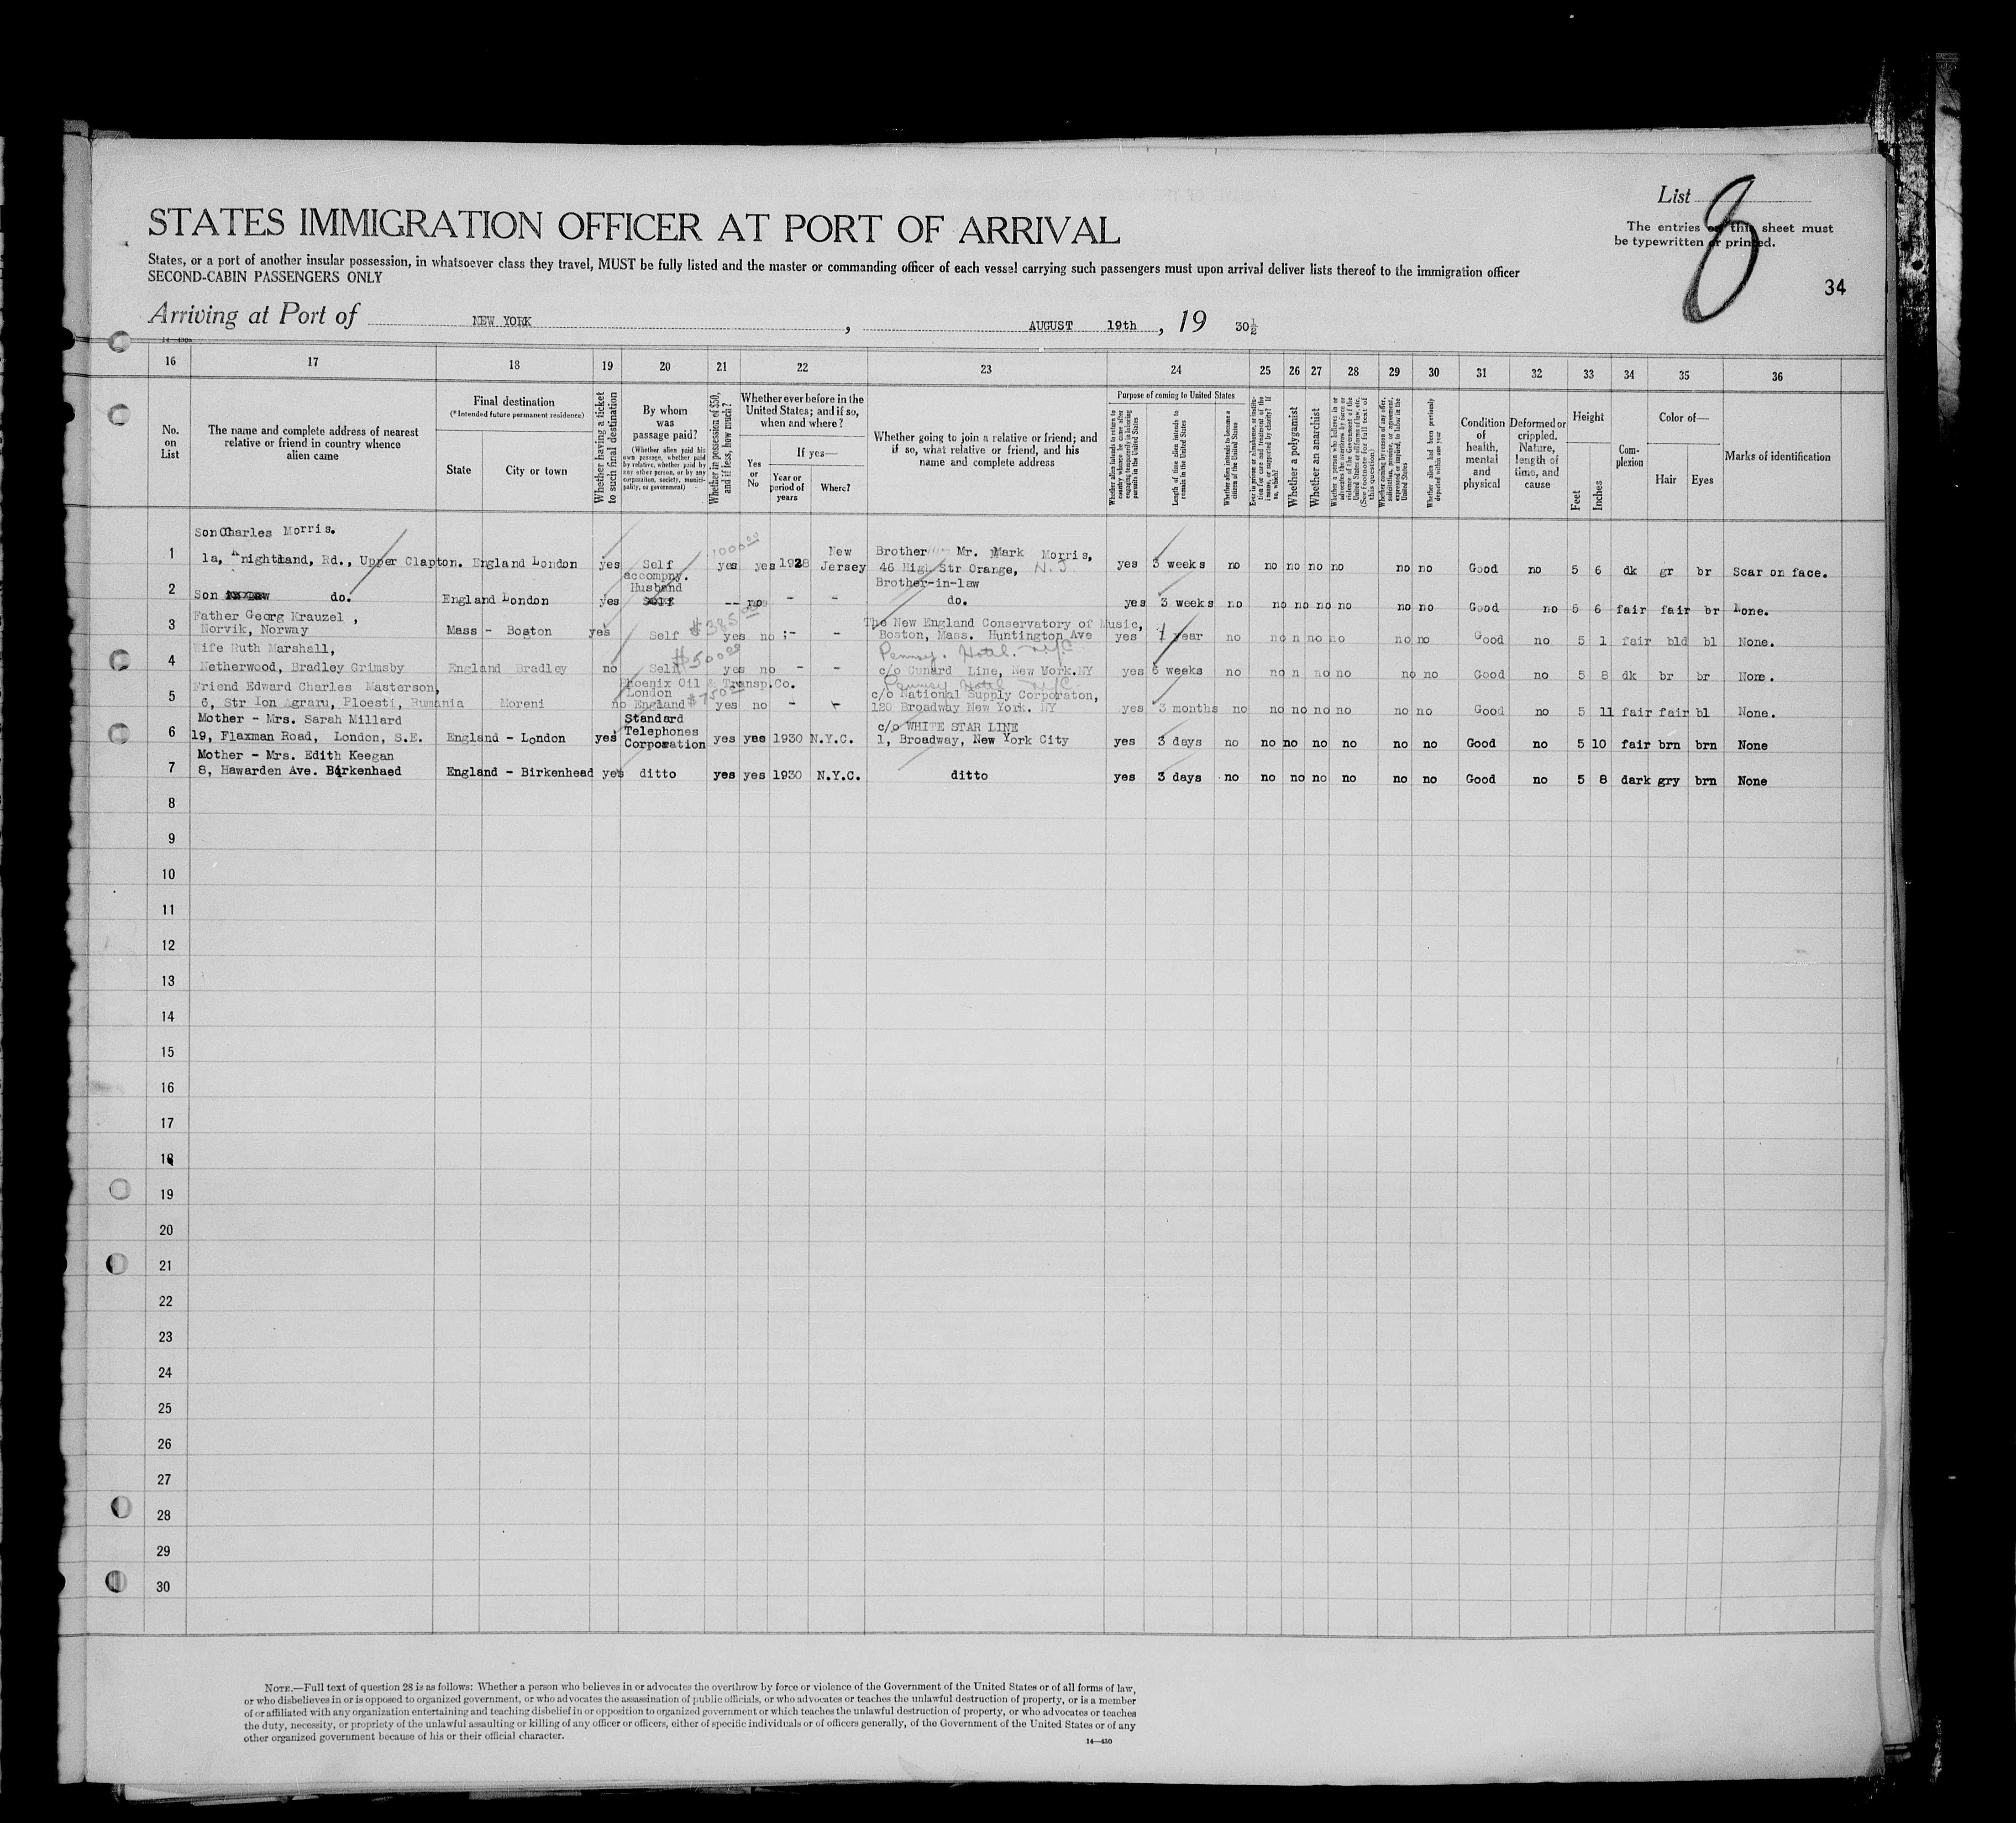 List 8
STATES IMMIGRATION OFFICER AT PORT OF ARRIVAL
The entries on this sheet must
be typewritten or printed.
States, or a port of another insular possession, in whatsoever class they travel, MUST be fully listed and the master or commanding officer of each vessel carrying such passengers must upon arrival deliver lists thereof to the immigration officer
SECOND-CABIN PASSENGERS ONLY
34
Arriving at Port of NEW YORK, AUGUST 19th, 19 30½
14—430a
16 17 18 19 20 21 22 23 24 25 26 27 28 29 30 31 32 33 34 35 36
No. on List
The name and complete address of nearest relative or friend in country whence alien came
Final destination
(*Intended future permanent residence)
State
City or town
Whether having a ticket to such final destination
By whom was passage paid?
(Whether alien paid his own passage, whether paid by relative, whether paid by any other person, or by any corporation, society, municipality, or government)
Whether in possession of $50, and if less, how much?
Whether ever before in the United States; and if so, when and where?
Yes or No
If yes—
Year or period of years
Where?
Whether going to join a relative or friend; and if so, what relative or friend, and his name and complete address
Purpose of coming to United States
Whether alien intends to return to country whence he came after engaging temporarily in laboring pursuits in the United States
Length of time alien intends to remain in the United States
Whether alien intends to become a citizen of the United States
Ever in prison or almshouse, or institution for care and treatment of the insane, or supported by charity? If so, which?
Whether a polygamist
Whether an anarchist
Whether a person who believes in or advocates the overthrow by force or violence of the Government of the United States or all forms of law, etc. (See footnote for full text of this question)
Whether coming by reason of any offer, solicitation, promise, or agreement, expressed or implied, to labor in the United States
Whether alien had been previously deported within one year
Condition of health, mental and physical
Deformed or crippled. Nature, length of time, and cause
Height
Feet
Inches
Complexion
Color of—
Hair
Eyes
Marks of identification
Son Charles Morris.
1 1a, Knightland, Rd., Upper Clapton. England London yes Self 1000.00 yes yes 1928 New Jersey Brother Mr. Mark Morris, 46 High Str Orange, N.J. yes 3 weeks no no no no no no no Good no 5 6 dk gr br Scar on face.
2 Son do. England London yes accompny. Husband -- no - - Brother-in-law do. yes 3 weeks no no no no no no no Good no 5 6 fair fair br None.
3 Father Georg Krauzel, Norvik, Norway Mass - Boston yes Self $385.00 yes no ;- - The New England Conservatory of Music, Boston, Mass. Huntington Ave yes 1 year no no n no no no no Good no 5 1 fair bld bl None.
4 Wife Ruth Marshall, Netherwood, Bradley Grimsby England Bradley no Self $500.00 yes no - - Pennsy. Hotel. NYC c/o Cunard Line, New York.NY yes 6 weeks no no n no no no no Good no 5 8 dk br br None.
5 Friend Edward Charles Masterson, 6, Str Ion Agraru, Ploesti, Rumania Moreni no Phoenix Oil & Transp.Co. London England $750.00 yes no - - Pennsy Hotel NYC. c/o National Supply Corporaton, 120 Broadway New York. NY yes 3 months no no no no no no no Good no 5 11 fair fair bl None.
6 Mother - Mrs. Sarah Millard 19, Flaxman Road, London, S.E. England - London yes Standard Telephones Corporation yes yes 1930 N.Y.C. c/o WHITE STAR LINE 1, Broadway, New York City yes 3 days no no no no no no no Good no 5 10 fair brn brn None
7 Mother - Mrs. Edith Keegan 8, Hawarden Ave. Birkenhaed England - Birkenhead yes ditto yes yes 1930 N.Y.C. ditto yes 3 days no no no no no no no Good no 5 8 dark gry brn None
8
9
10
11
12
13
14
15
16
17
18
19
20
21
22
23
24
25
26
27
28
29
30
NOTE.—Full text of question 28 is as follows: Whether a person who believes in or advocates the overthrow by force or violence of the Government of the United States or of all forms of law,
or who disbelieves in or is opposed to organized government, or who advocates the assassination of public officials, or who advocates or teaches the unlawful destruction of property, or is a member
of or affiliated with any organization entertaining and teaching disbelief in or opposition to organized government or which teaches the unlawful destruction of property, or who advocates or teaches
the duty, necessity, or propriety of the unlawful assaulting or killing of any officer or officers, either of specific individuals or of officers generally, of the Government of the United States or of any
other organized government because of his or their official character.
14—430